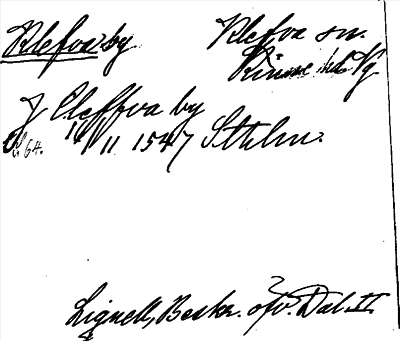 Klefva by Klefva sn.
Kinne hd. Vg
J Cleffva by
64. 14/11 1547 Sthlm.
Lignell, Beskr. öfv. Dal. II.